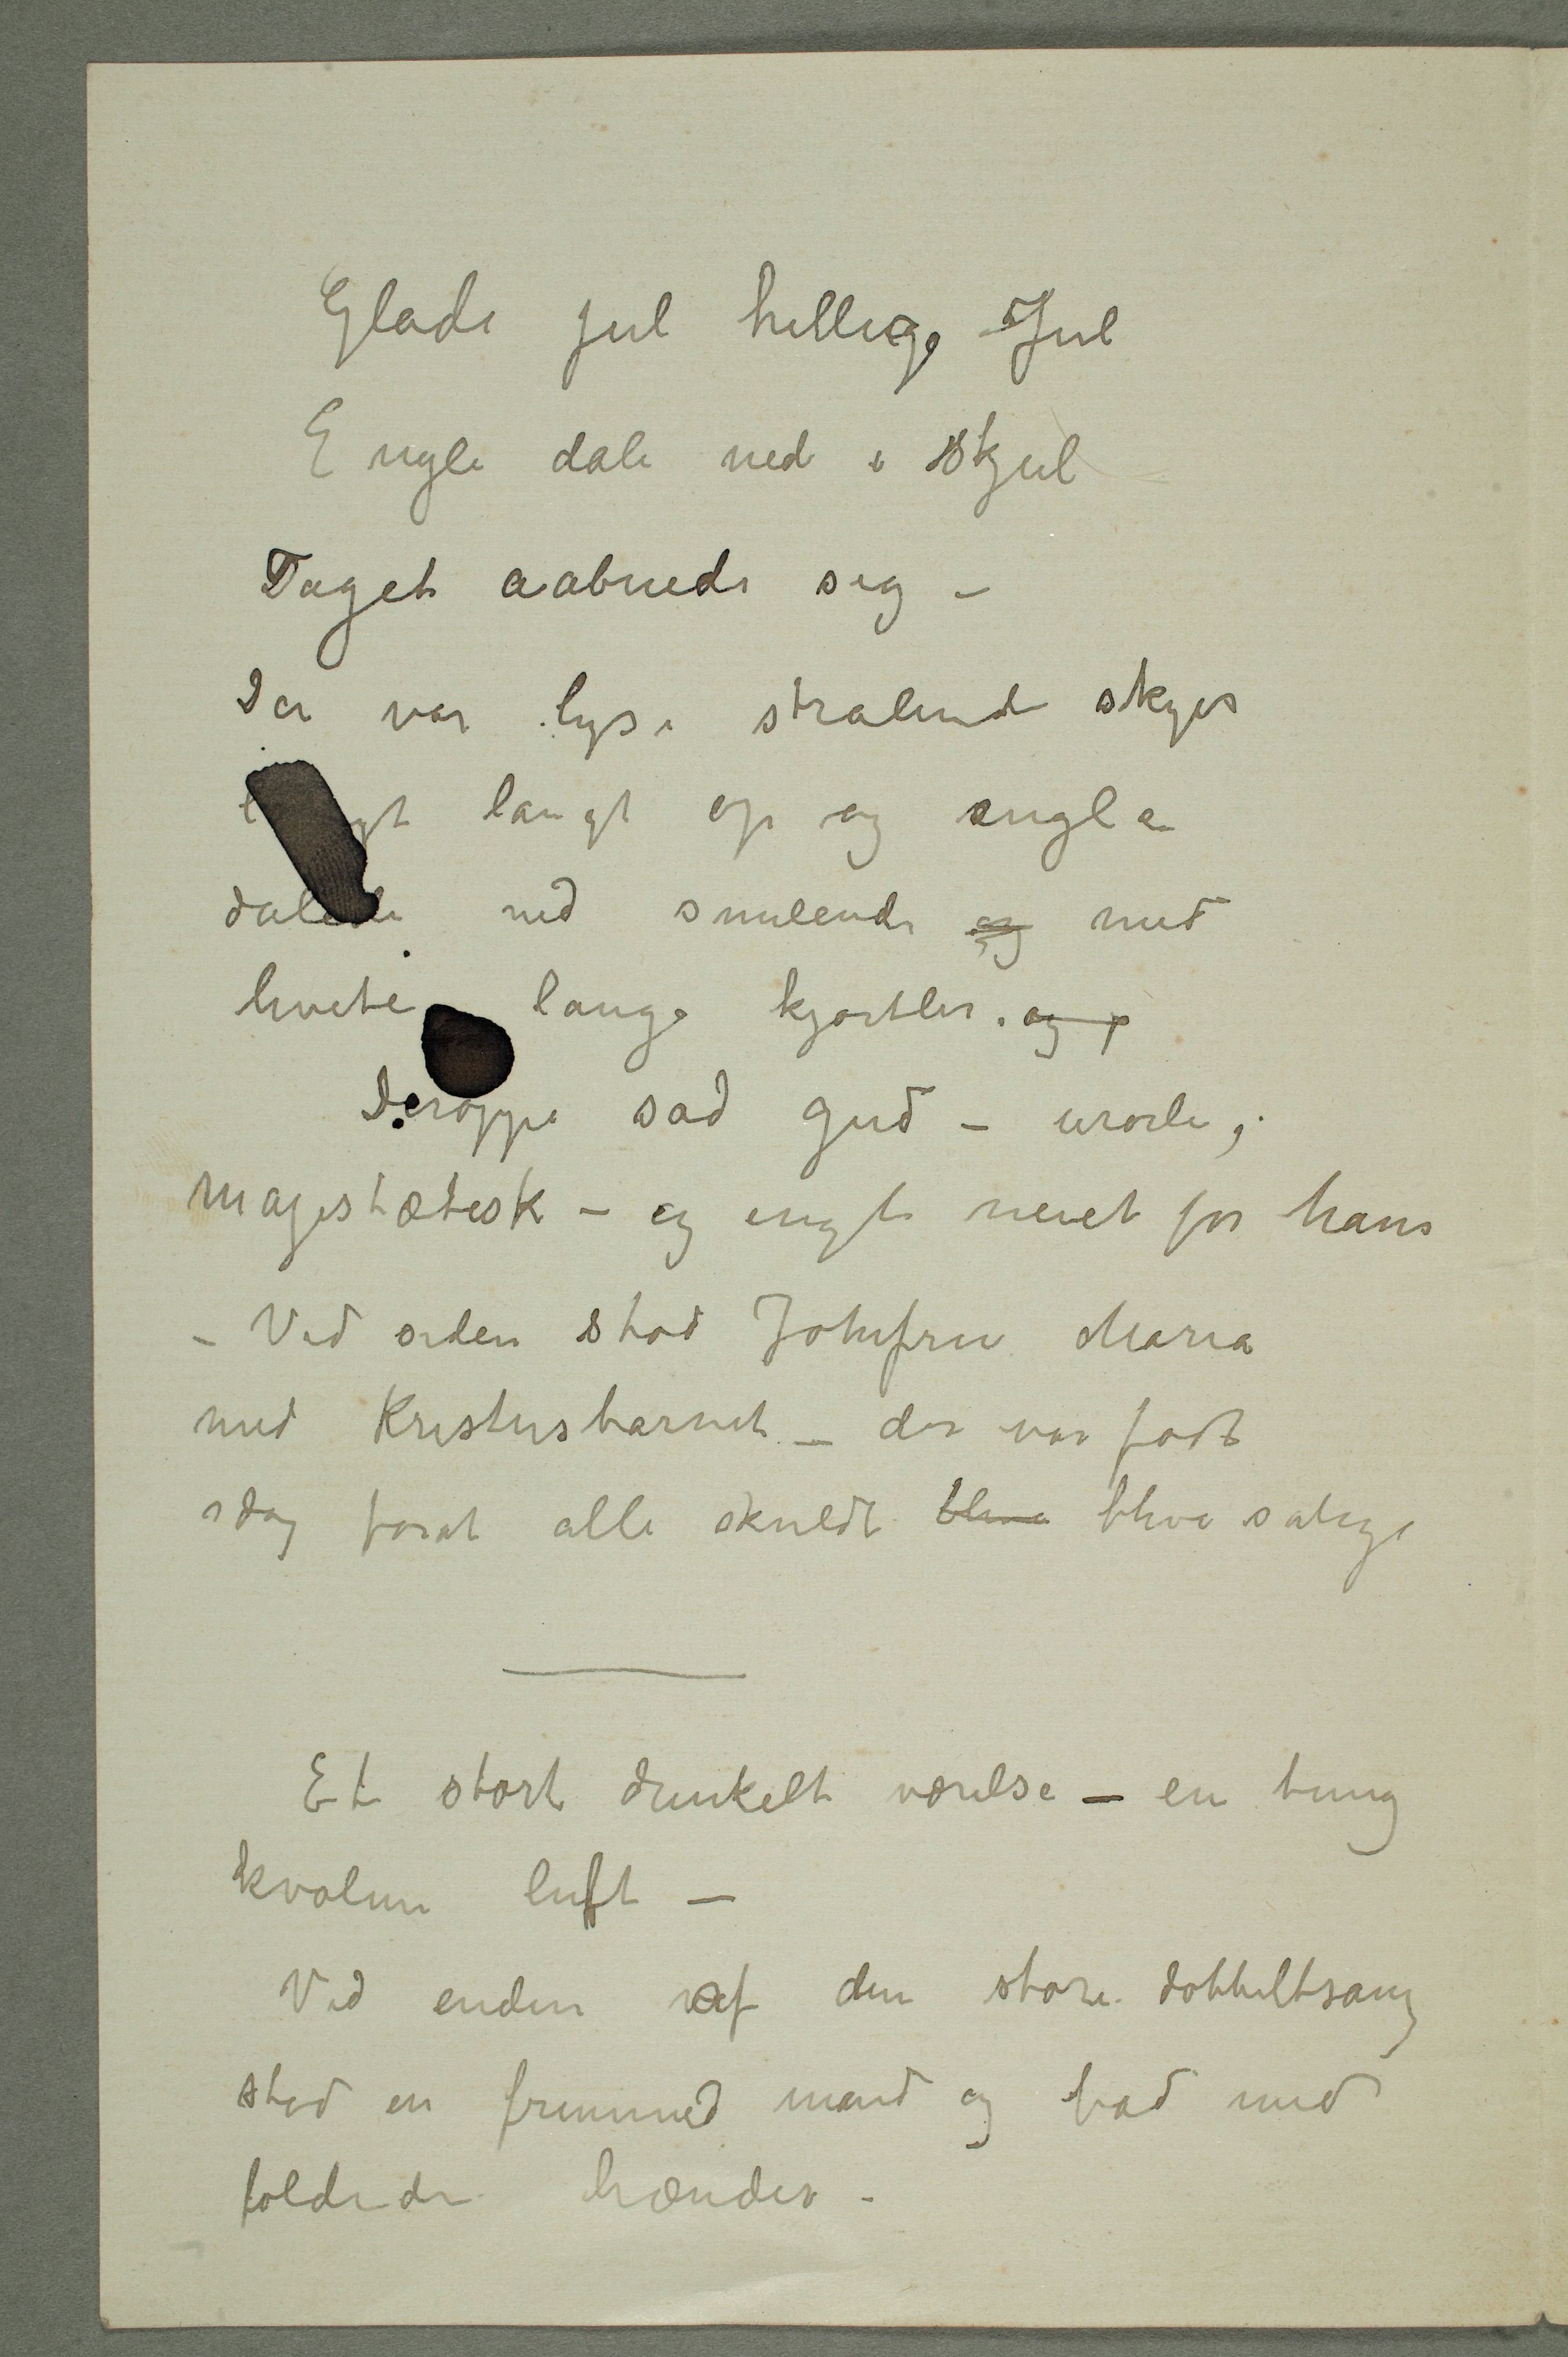 Glade jul hellige Jul
Engle dale ned i skjul
Taget aabnede sig –
Der var lyse stralende skyer
langt langt op og engle
dalede ned smilende og med
hvite lange kjortler. og
Deroppe sad gud –
magestætesk – og engle neiet for hans
– Ved siden stod Jomfru Maria
med Kristusbarnet – der var født
idag forat alle skulde blive blive salige
Et stort dunkelt værelse – en tung
kvalm luft –
Ved enden af den store dobbeltsang
stod en fremmed mand og bad med
foldede hænder –